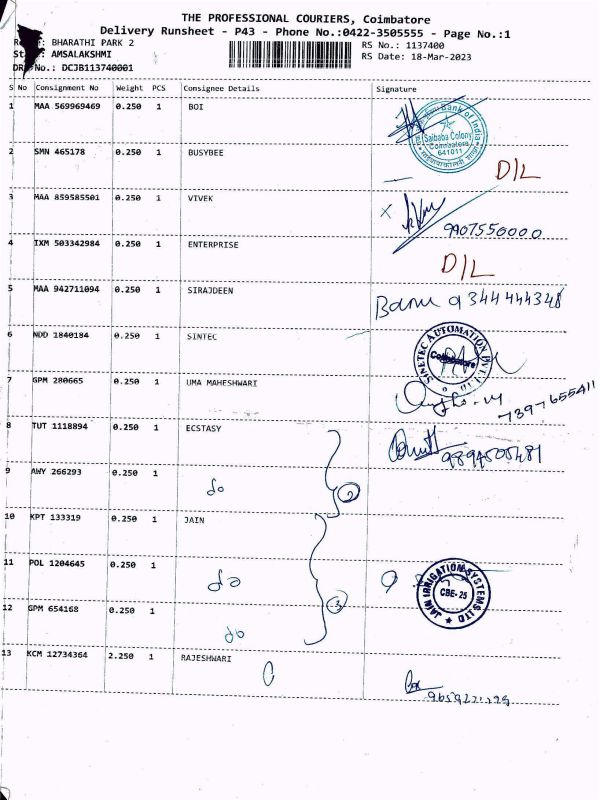 THE PROFESSIONAL COURIERS, Coimbatore
Delivery Runsheet - P43 - Phone No.:0422-3505555 - Page No.:1
: BHARATHI PARK 2
RS No.: 1137400
AMSALAKSHMI
RS Date: 18-Mar-2023
No.: DCJB113740001
S No Consignment No Weight PCS Consignee Details Signature
1 MAA 569969469 0.250 1 BOI
Bank of India
Saibaba Colony
Coimbatore
641011
2 SMN 465178 0.250 1 BUSYBEE D/L
3 MAA 859585501 0.250 1 VIVEK
9907550000
4 IXM 503342984 0.250 1 ENTERPRISE D/L
5 MAA 942711094 0.250 1 SIRAJDEEN Banu 9344444348
6 NDD 1840184 0.250 1 SINTEC
SINETEC AUTOMATION PVT. LTD
Coimbatore
7 GPM 280665 0.250 1 UMA MAHESHWARI
7397655411
8 TUT 1118894 0.250 1 ECSTASY
9894505481
9 AWY 266293 0.250 1 do 2
10 KPT 133319 0.250 1 JAIN
11 POL 1204645 0.250 1 do 3
JAIN IRRIGATION SYSTEMS LTD
CBE-25
12 GPM 654168 0.250 1 do
13 KCM 12734364 2.250 1 RAJESHWARI